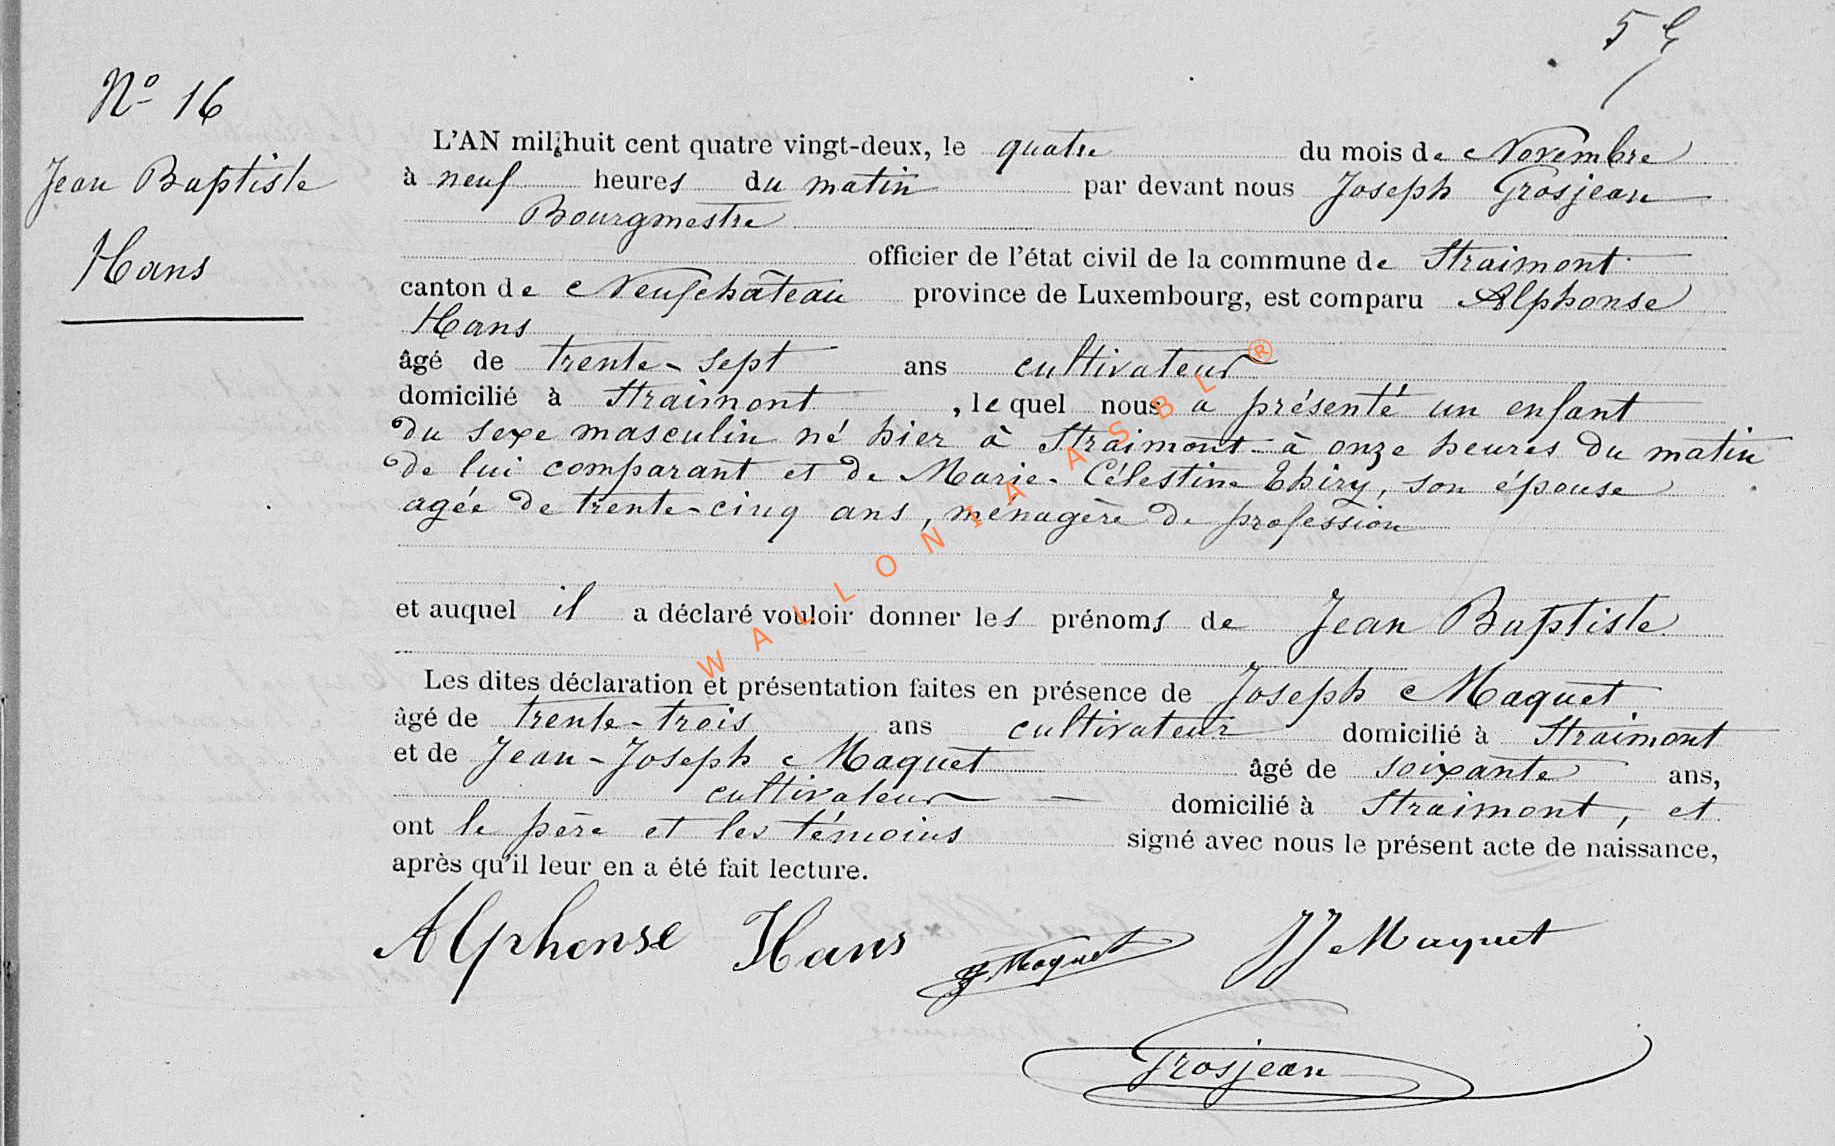 5
Nº 16
Jean Baptiste
Hans
L'AN mil huit cent quatre vingt-deux, le quatre du mois de Novembre
à neuf heures du matin par devant nous Joseph Grosjean
Bourgmestre
officier de l'état civil de la commune de Straimont
canton de Neufchâteau province de Luxembourg, est comparu Alphonse
Hans
âgé de trente-sept ans cultivateur
domicilié à Straimont, lequel nous a présenté un enfant
du sexe masculin né hier à Straimont à onze heures du matin
de lui comparant et de Marie-Célestine Thiry, son épouse
agée de trente-cinq ans, ménagère de profession
et auquel il a déclaré vouloir donner les prénoms de Jean Baptiste
Les dites déclaration et présentation faites en présence de Joseph Maquet
âgé de trente-trois ans cultivateur domicilié à Straimont
et de Jean-Joseph Maquet âgé de soixante ans,
cultivateur — domicilié à Straimont, et
ont le père et les témoins signé avec nous le présent acte de naissance,
après qu'il leur en a été fait lecture.
Alphonse Hans J. Maquet JJ Maquet
Grosjean
WALLONIA ASBL ®